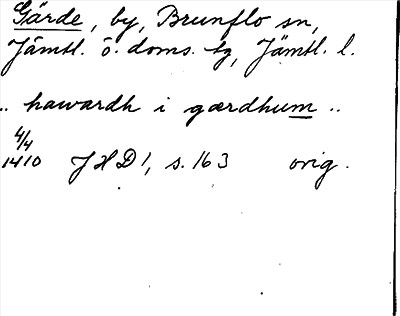 Gärde, by, Brunflo sn,
Jämtl. ö. doms. tg, Jämtl. l.
.. hawardh i gærdhum ..
4/4
1410 JHD 1, s. 163 orig.